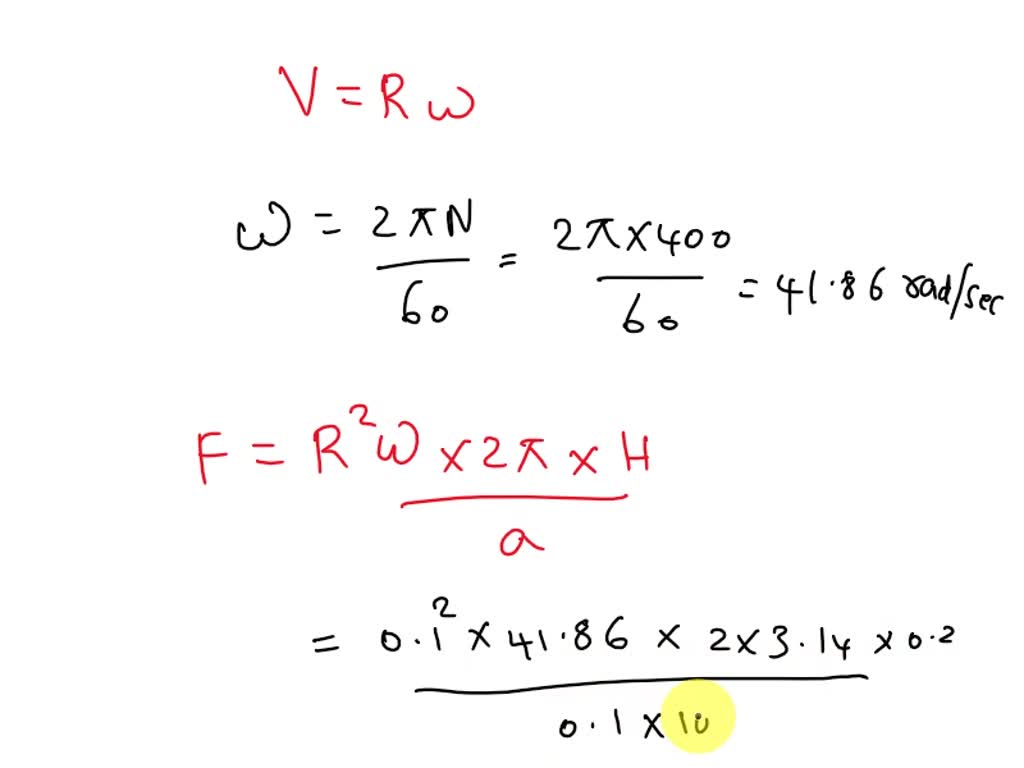 V = R ω
ω = 2πN / 60 = 2π × 400 / 60 = 41.86 rad/sec
F = R² ω × 2π × H / a
= 0.1² × 41.86 × 2 × 3.14 × 0.2 / 0.1 × 10